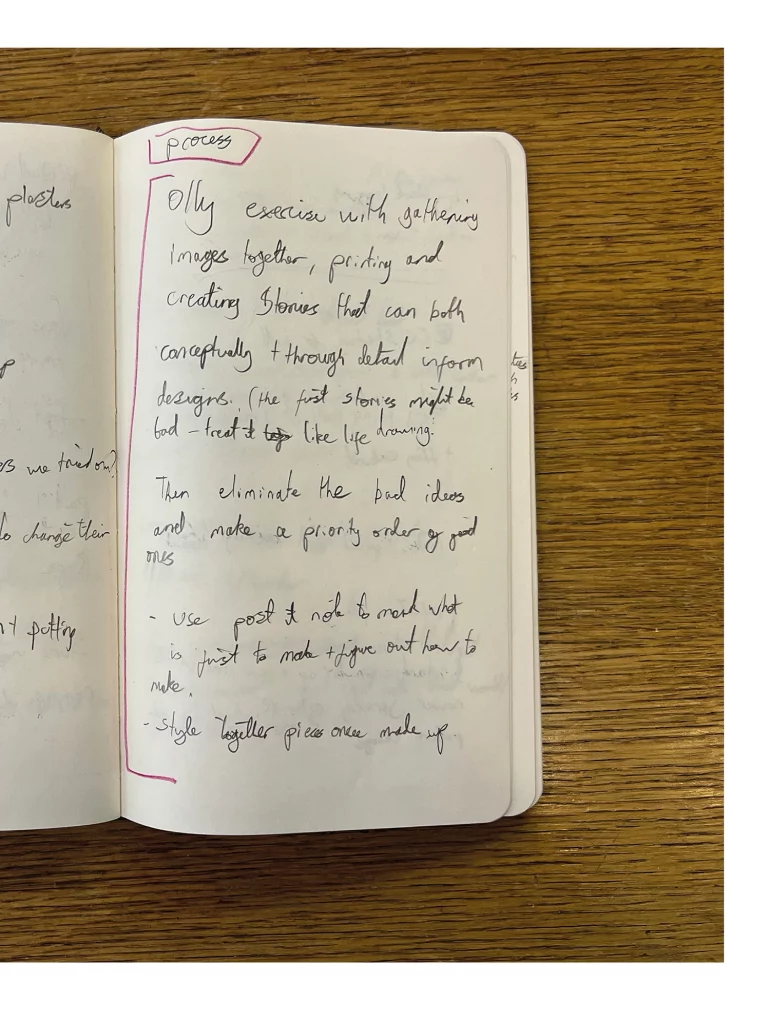 plasters
p
rs we tried on?
to change their
putting
process
Olly exercise with gathering
images together, printing and
creating Stories that can both
conceptually + through detail inform
designs. (the first stories might be
bad - treat it like life drawing.
Then eliminate the bad ideas
and make a priority order of good
ones
- use post it note to mark what
is just to make + figure out how to
make.
- style together pieces once made up.